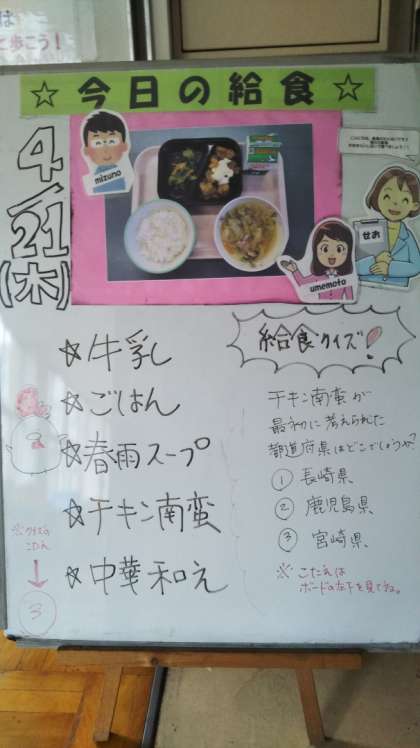 ☆今日の給食☆
4/21(木)
mizuno
umemoto
せお
☆牛乳
☆ごはん
☆春雨スープ
☆チキン南蛮
☆中華和え
給食クイズ!
チキン南蛮が
最初に考えられた
都道府県はどこでしょうか?
① 長崎県
② 鹿児島県
③ 宮崎県
※ こたえは
ボードの左下を見てね。
※クイズの
こたえ
↓
③
と歩こう!